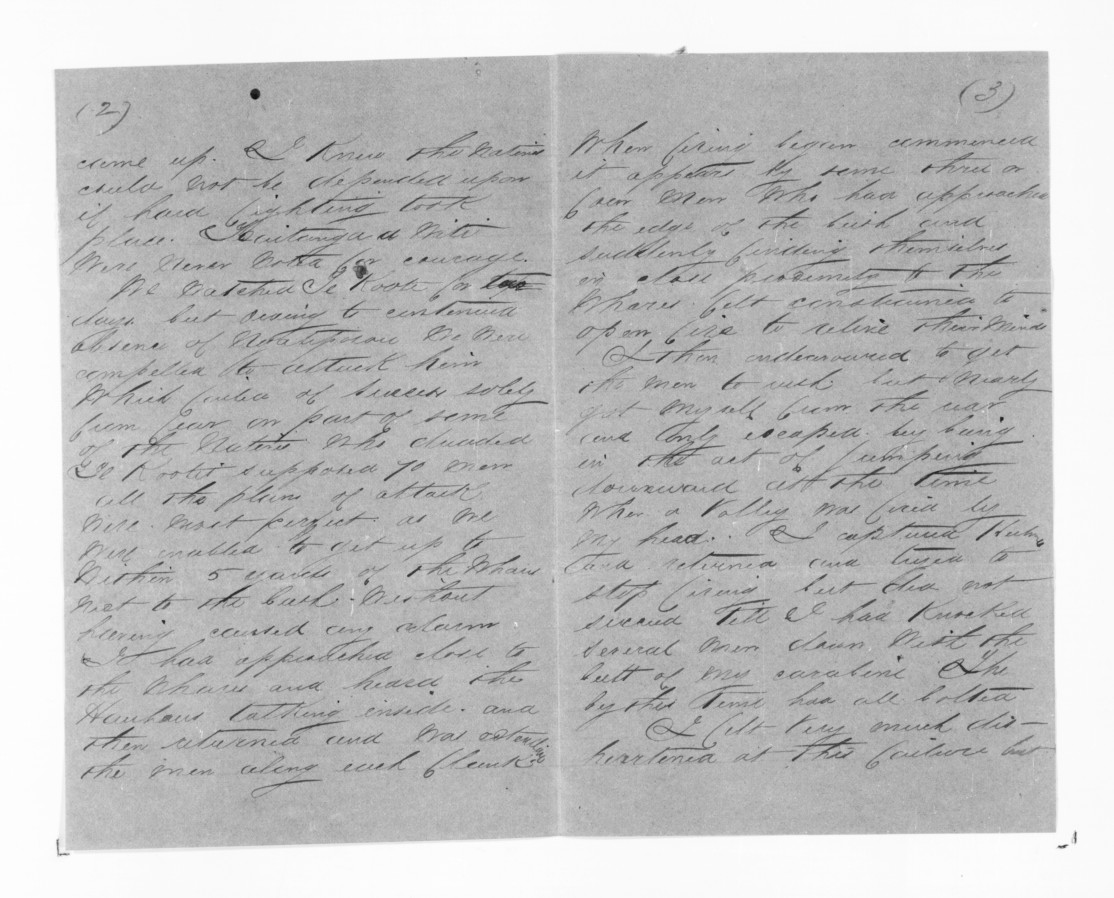 (2)
came up. I knew the Natives
could not be depended upon
if hard fighting took
place. Hauitangia a Witi
were never noted for courage.
We watched Te Kooti for two
days but owing to continued
absence of Ngatiporou we were
compelled to attack him
which failed of success solely
from fear on part of some
of the Natives who dreaded
Te Kooti's supposed 70 men
all the plans of attack
were most perfect as we
were enabled to get up to
within 5 yards of the Whares
next to the bush without
having caused any alarm
I had approached close to
the Whares and heard the
Hauhaus talking inside. and
then returned and was extending
the men along each flank
(3)
when firing began commenced
it appears by some three or
four men who had approached
the edge of the bush and
suddenly finding themselves
in close proximity to the
Whares felt constrained to
open fire to relieve their minds
I then endeavoured to get
the men to rush but nearly
got myself from the rear
and only escaped by being
in the act of jumping
downward at the time
when a Volley was fired by
my head. I captured
and returned and tried to
stop firing but did not
succeed till I had knocked
several men down with the
butt of my carabine The
by this time had all bolted
I felt very much dis-
heartened at this failure but